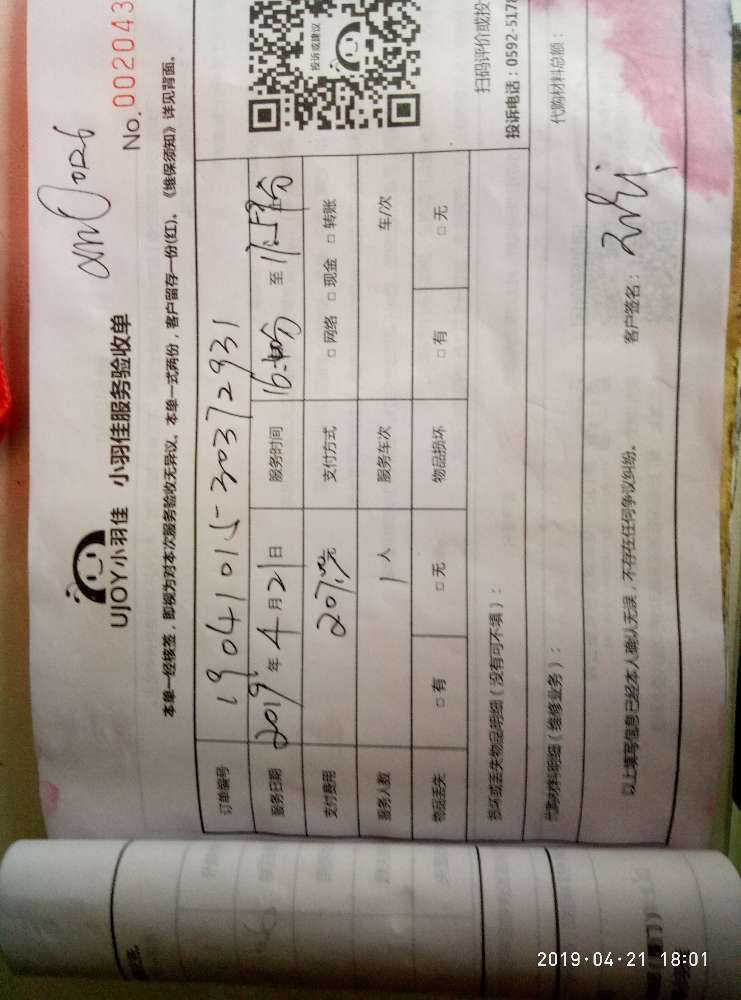 UJOY小羽佳 小羽佳服务验收单
No. 002043
本单一经核签，即视为对本次服务验收无异议。本单一式两份，客户留存一份(红)。《维保须知》详见背面。
订单编号 19041015-30372931
服务日期 2019年4月21日 服务时间 至
支付费用 207.00元 支付方式 □ 网络 □ 现金 □ 转账
服务人数 1人 服务车次 车/次
物品丢失 □ 有 □ 无 物品损坏 □ 有 □ 无
投诉或建议
扫码评价或投
投诉电话：0592-5178
损坏或丢失物品明细（没有可不填）：
代购材料明细（维修业务）： 代购材料总额：
以上填写信息已经本人确认无误，不存在任何争议纠纷。 客户签名：
2019·04·21 18:01